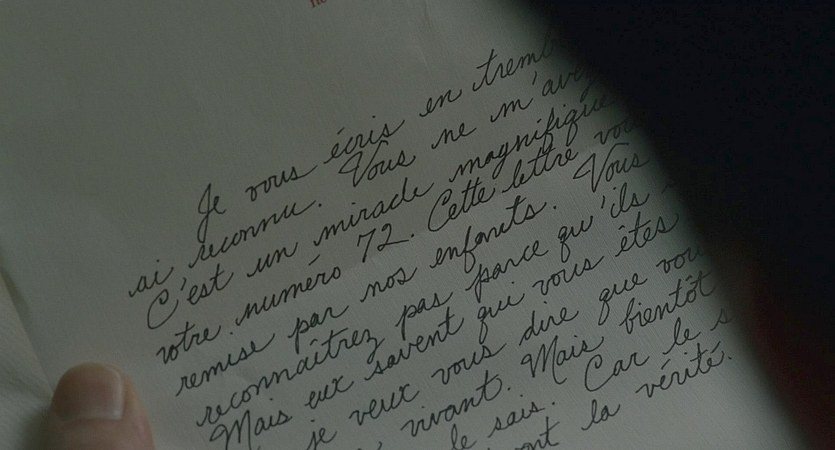 Je vous écris en tremb
ai reconnu. Vous ne m'ave
C'est un miracle magnifique
votre numéro 72. Cette lettre vou
remise par nos enfants. Vous
reconnaîtrez pas parce qu'ils
Mais eux savent qui vous êtes
je veux vous dire que vou
vivant. Mais bientôt
le sais. Car le s
ont la vérité.